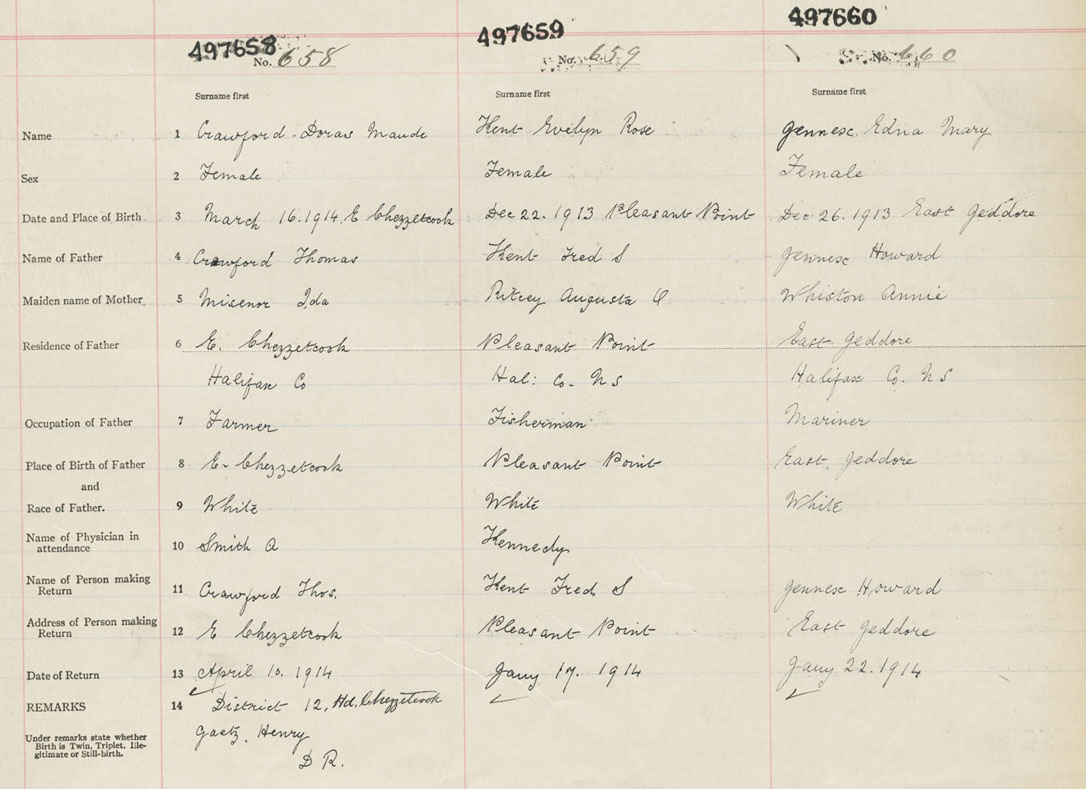 497658 497659 497660
No. 658 No. 659 No. 660
Surname first Surname first Surname first
Name 1 Crawford Doras Maude Kent Evelyn Rose Jennex Edna Mary
Sex 2 Female Female Female
Date and Place of Birth 3 March 16.1914, E Chezzetcook Dec 22. 1913 Pleasant Point Dec 26. 1913 East Jeddore
Name of Father 4 Crawford Thomas Kent Fred S Jennex Howard
Maiden name of Mother 5 Misenor Ida Ritcey Augusta Whiston Annie
Residence of Father 6 E. Chezzetcook Pleasant Point East Jeddore
Halifax Co Hal: Co. N S Halifax Co. N S
Occupation of Father 7 Farmer Fisherman Mariner
Place of Birth of Father 8 E. Chezzetcook Pleasant Point East Jeddore
and
Race of Father. 9 White White White
Name of Physician in
attendance 10 Smith A Kennedy
Name of Person making
Return 11 Crawford Thos. Kent Fred S Jennex Howard
Address of Person making
Return 12 E Chezzetcook Pleasant Point East Jeddore
Date of Return 13 April 10. 1914 Jany 17. 1914 Jany 22. 1914
REMARKS 14 District 12, Hd. Chezzetcook
Gaetz, Henry
D R.
Under remarks state whether
Birth is Twin, Triplet, Ille-
gitimate or Still-birth.